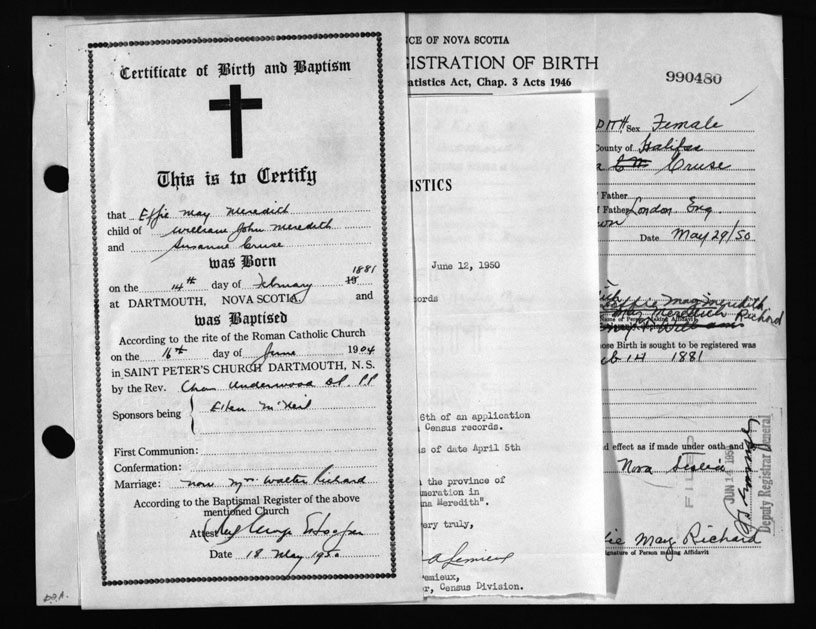 Certificate of Birth and Baptism
This is to Certify
that Effie May Meredith
child of William John Meredith
and Susanna Cruse
was Born
1881
on the 14th day of February 19
at DARTMOUTH, NOVA SCOTIA and
was Baptised
According to the rite of the Roman Catholic Church
on the 16th day of June 1904
in SAINT PETER'S CHURCH DARTMOUTH, N. S.
by the Rev. Chas Underwood
Sponsors being Ellen McNeil
First Communion:
Confermation:
Marriage: now Mrs Walter Richard
According to the Baptismal Register of the above
mentioned Church
Attest
Date 18 May 1950
NCE OF NOVA SCOTIA
GISTRATION OF BIRTH
atistics Act, Chap. 3 Acts 1946
990480
ISTICS
June 12, 1950
ords
6th of an application
Census records.
s of date April 5th
the province of
meration in
na Meredith".
ery truly,
A Lemieux
emieux,
r, Census Division.
DITH Sex Female
County of Halifax
Cruse
Father
f Father London Eng
wn
Date May 29/50
Effie May Meredith
May Meredith Richard
Name of Person Making Affidavit
ose Birth is sought to be registered was
eb 14 1881
d effect as if made under oath and
Nova Scotia
FILED
JUN 14 1950
Deputy Registrar General
ie May Richard
ignature of Person making Affidavit